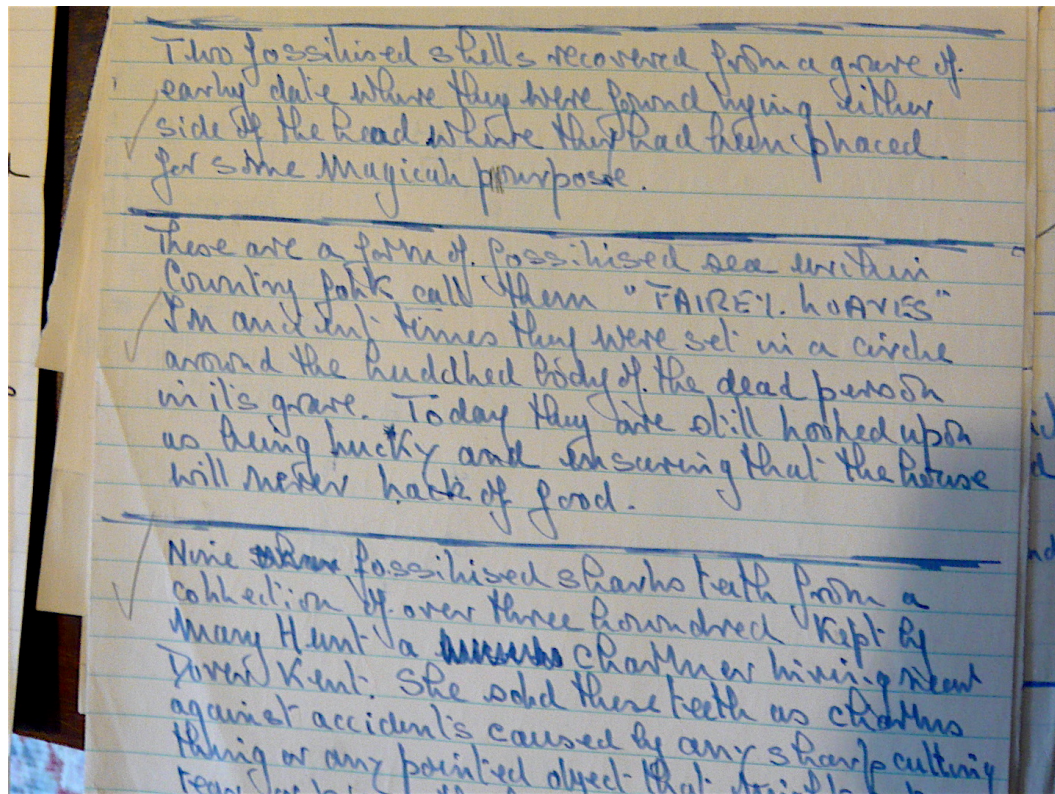 Two fossilised shells recovered from a grave of.
early date where they were found lying either
side of the head where they had been placed.
for some magical purpose.
These are a form of. fossilised sea urchin
Country folk call them "FAIREY. LOAVES"
In ancient times they were set in a circle
around the huddled body of. the dead person
in its grave. Today they are still looked upon
as being lucky and ensuring that the house
will never lack of good.
Nine fossilised sharks teeth from a
collection of over three houndred Kept by
Mary Hunt a charmer living near
Dover Kent. She sold these teeth as charms
against accidents caused by any sharp cutting
thing or any pointed object that
tear